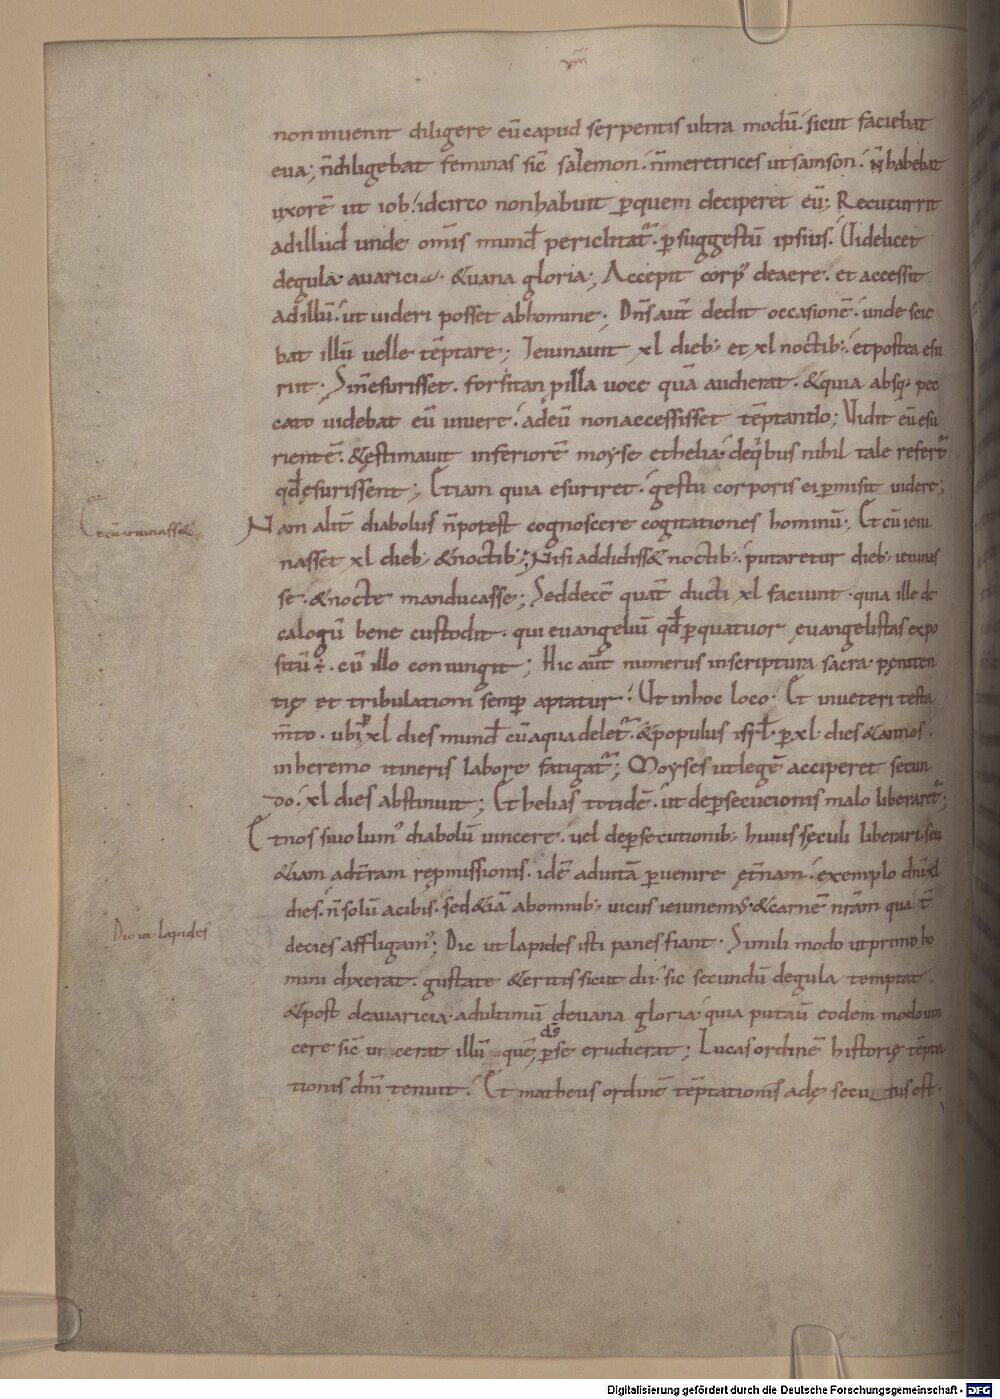 viii
non inuenit diligere eū capud serpentis ultra modū. sicut faciebat
eua; n̄ diligebat feminas sic̄ salemon. n̄ meretrices ut samson. n̄ habebat
uxorē ut iob. idcirco non habuit ꝑ quem deciperet eū; Recucurrit
ad illud unde om̄is mund᷒ periclitat᷑. ꝑ suggestū ipsius. Uidelicet
de gula. auaricia. & uana gloria; Accepit corp᷒ de aere. et accessit
ad illū. ut uideri posset ab homine; Dn̄s aut̄ dedit occasionē. unde scie
bat illū uelle tēptare; Ieiunauit xl dieb; et xl noctib;. et postea esu
riit; Si n̄ esurisset. forsitan ꝑ illa uoce quā audierat. & quia absq; pec
cato uidebat eū uiuere. ad eū non accessisset tēptando; Vidit eū esu
rientē. & ęstimauit inferiorē moyse et helia. de qͥbus nihil tale refert᷑
qd̄ ęsurissent; Etiam quia esuriret. gestu corporis ei ꝑmisit uidere;
Nam alit̄ diabolus n̄ potest cognoscere cogitationes hominū; Et cū ieiu
Et cū ieiunass&
nasset xl dieb; & noctib;; Nisi addidiss& noctib;. putaretur dieb; ieiunas
se. & nocte manducasse; Sed decē quat̄ ducti xl faciunt. quia ille de
calogū bene custodit. qui euangeliū qd̄ ꝑ quatuor ęuangelistas expo
sitū ÷. cū illo coniungit; Hic aut̄ numerus in scriptura sacra pęniten
tię et tribulationi semꝑ aptatur. Ut in hoc loco. Et in ueteri testa
m̄to. ubi ꝑ xl dies mund᷒ cū aqua delet᷑. & populus isrl̄ ꝑ xl dies & annos.
in heremo itineris labore fatigat᷑; Moyses ut legē acciperet secun
do. xl dies abstinuit; Et helias totidē. ut de ꝑsecucionis malo liberaret᷑;
Et nos si uolum᷒ diabolū uincere. uel de ꝑsecutionib; huius sęculi liberari. seu
&iam ad t̄ram rępmissionis. idē ad uitā ꝑuenire ęt̄nam. exemplo dn̄i xl
dies. n̄ solū a cibis. sed &iā ab omnib; uiciis ieiunem᷒. & carnē nr̄am quat̄
Dic ut lapides
decies affligam᷒; Dic ut lapides isti panes fiant. Simili modo ut primo ho
mini dixerat. gustate & eritis sicut dii. sic secundū de gula temptat.
& post de auaricia. ad ultimū de uana gloria. quia putau̅ eodem modo uin
cere sic̄ uicerat illū quē d̄s ꝑ se erudierat; Lucas ordinē historię tēpta
tionis dn̄i tenuit. Et matheus ordinē tēptationis adę secutus est.
Digitalisierung gefördert durch die Deutsche Forschungsgemeinschaft - DFG